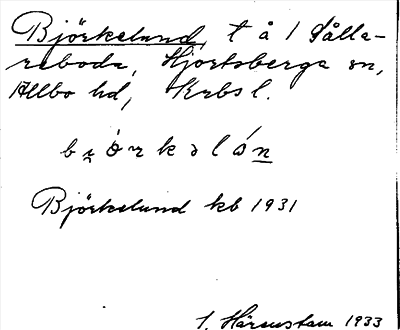 Björkelund, t å 1 Sålla-
reboda, Hjortsberga sn,
Allbo hd, Krbsl.
bi̯ó̤rkəló̤n
Björkelund kb 1931
J. Härenstam 1933